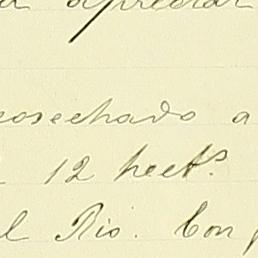 apreciar
cosechado a
12 hects.
el Rio. Con